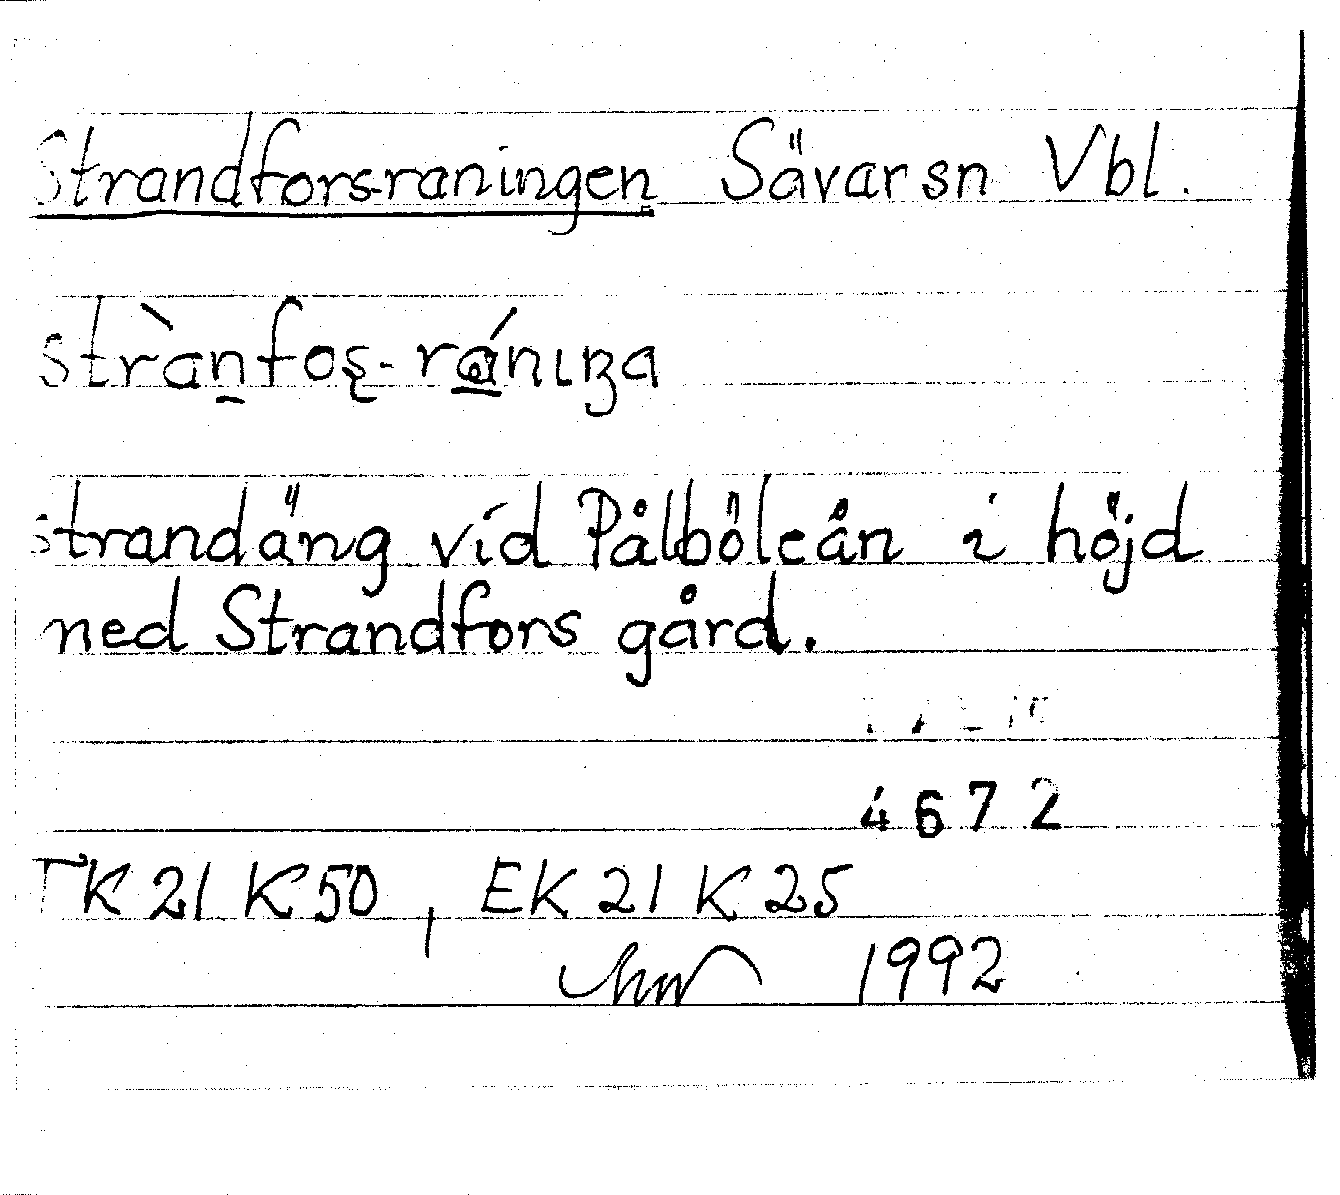 Strandfors-raningen Sävar sn Vbl.
strandäng vid Pålböleån i höjd
med Strandfors gård.
4672
TK 21 K 50, EK 21 K 25
1992